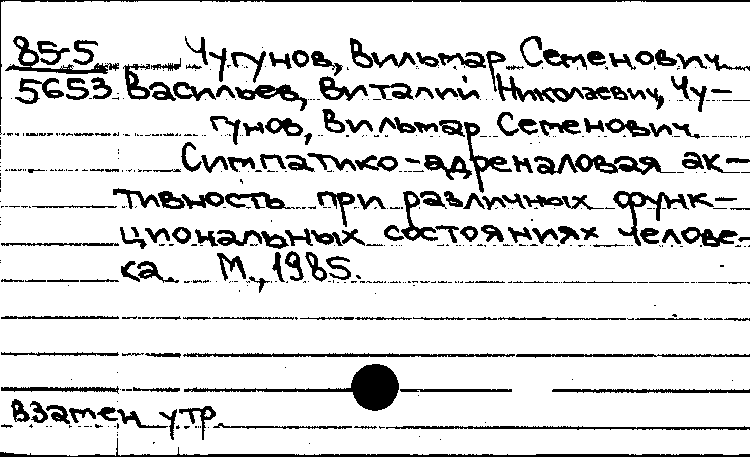 85-5 Чугунов, Вильмар Семенович.
5653 Васильев, Виталий Николаевич, Чу-
гунов, Вильмар Семенович.
Симпатико-адреналовая ак-
тивность при различных функ-
циональных состояниях челове-
ка. М., 1985.
взамен утр.